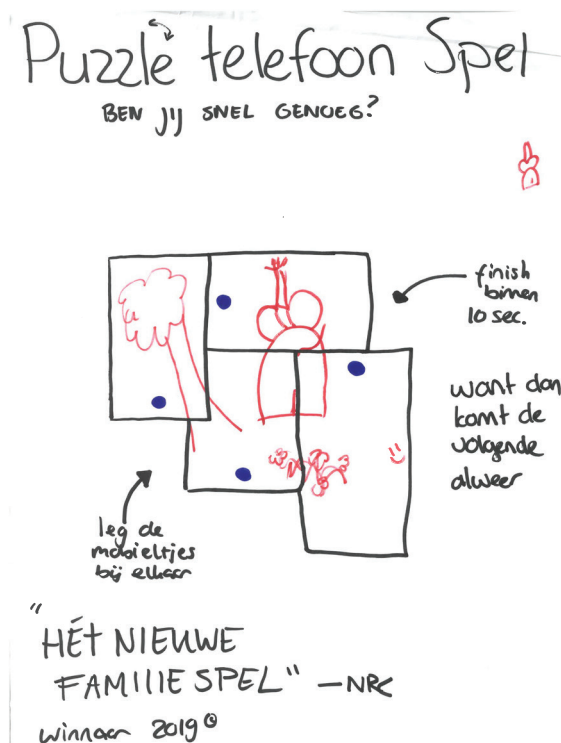 Puzzle telefoon Spel
BEN JIJ SNEL GENOEG?
finish
binnen
10 sec.
want dan
komt de
volgende
alweer
leg de
mobieltjes
bij elkaar
"HÉT NIEUWE
FAMILIE SPEL" — NRC
winnaar 2019©